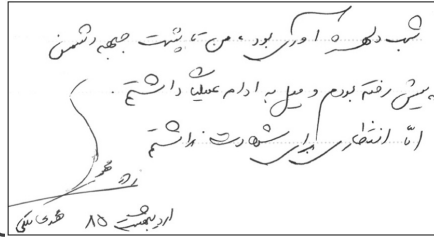 شب دلهره آوری بود، من تا پشت جبهه دشمن
پیش رفته بودم و میل به ادامه عملیات داشتم.
امّا انتظاری برای شهادت نداشتم
اردیبهشت ۸۵